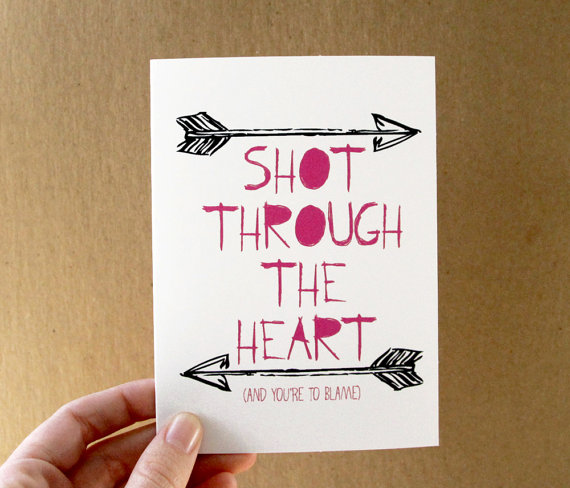 SHOT
THROUGH
THE
HEART
(AND YOU'RE TO BLAME)